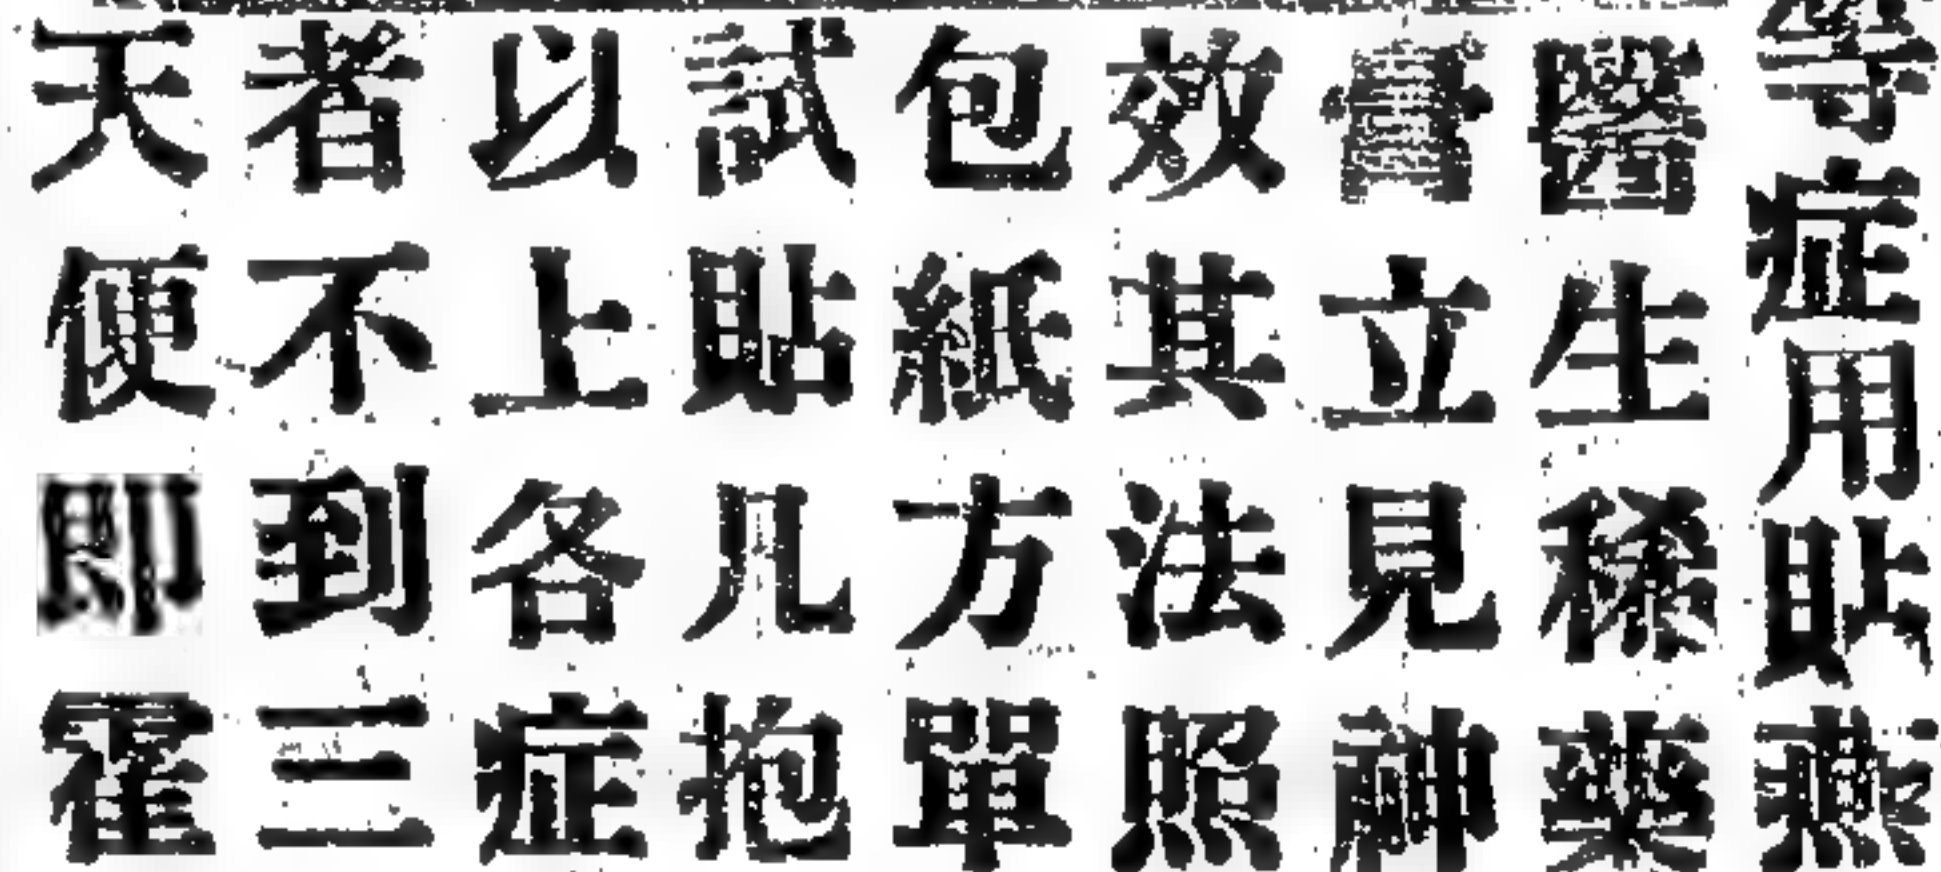 等症用貼燕
醫生稀藥
膏立見神
效其法照
包紙方單
試貼几抱
以上各症
者不到三
天便即霍